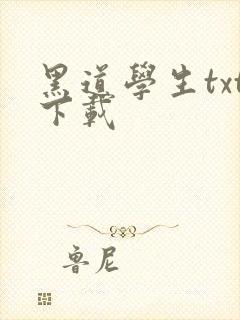 黑道學生txt
下載
魯尼